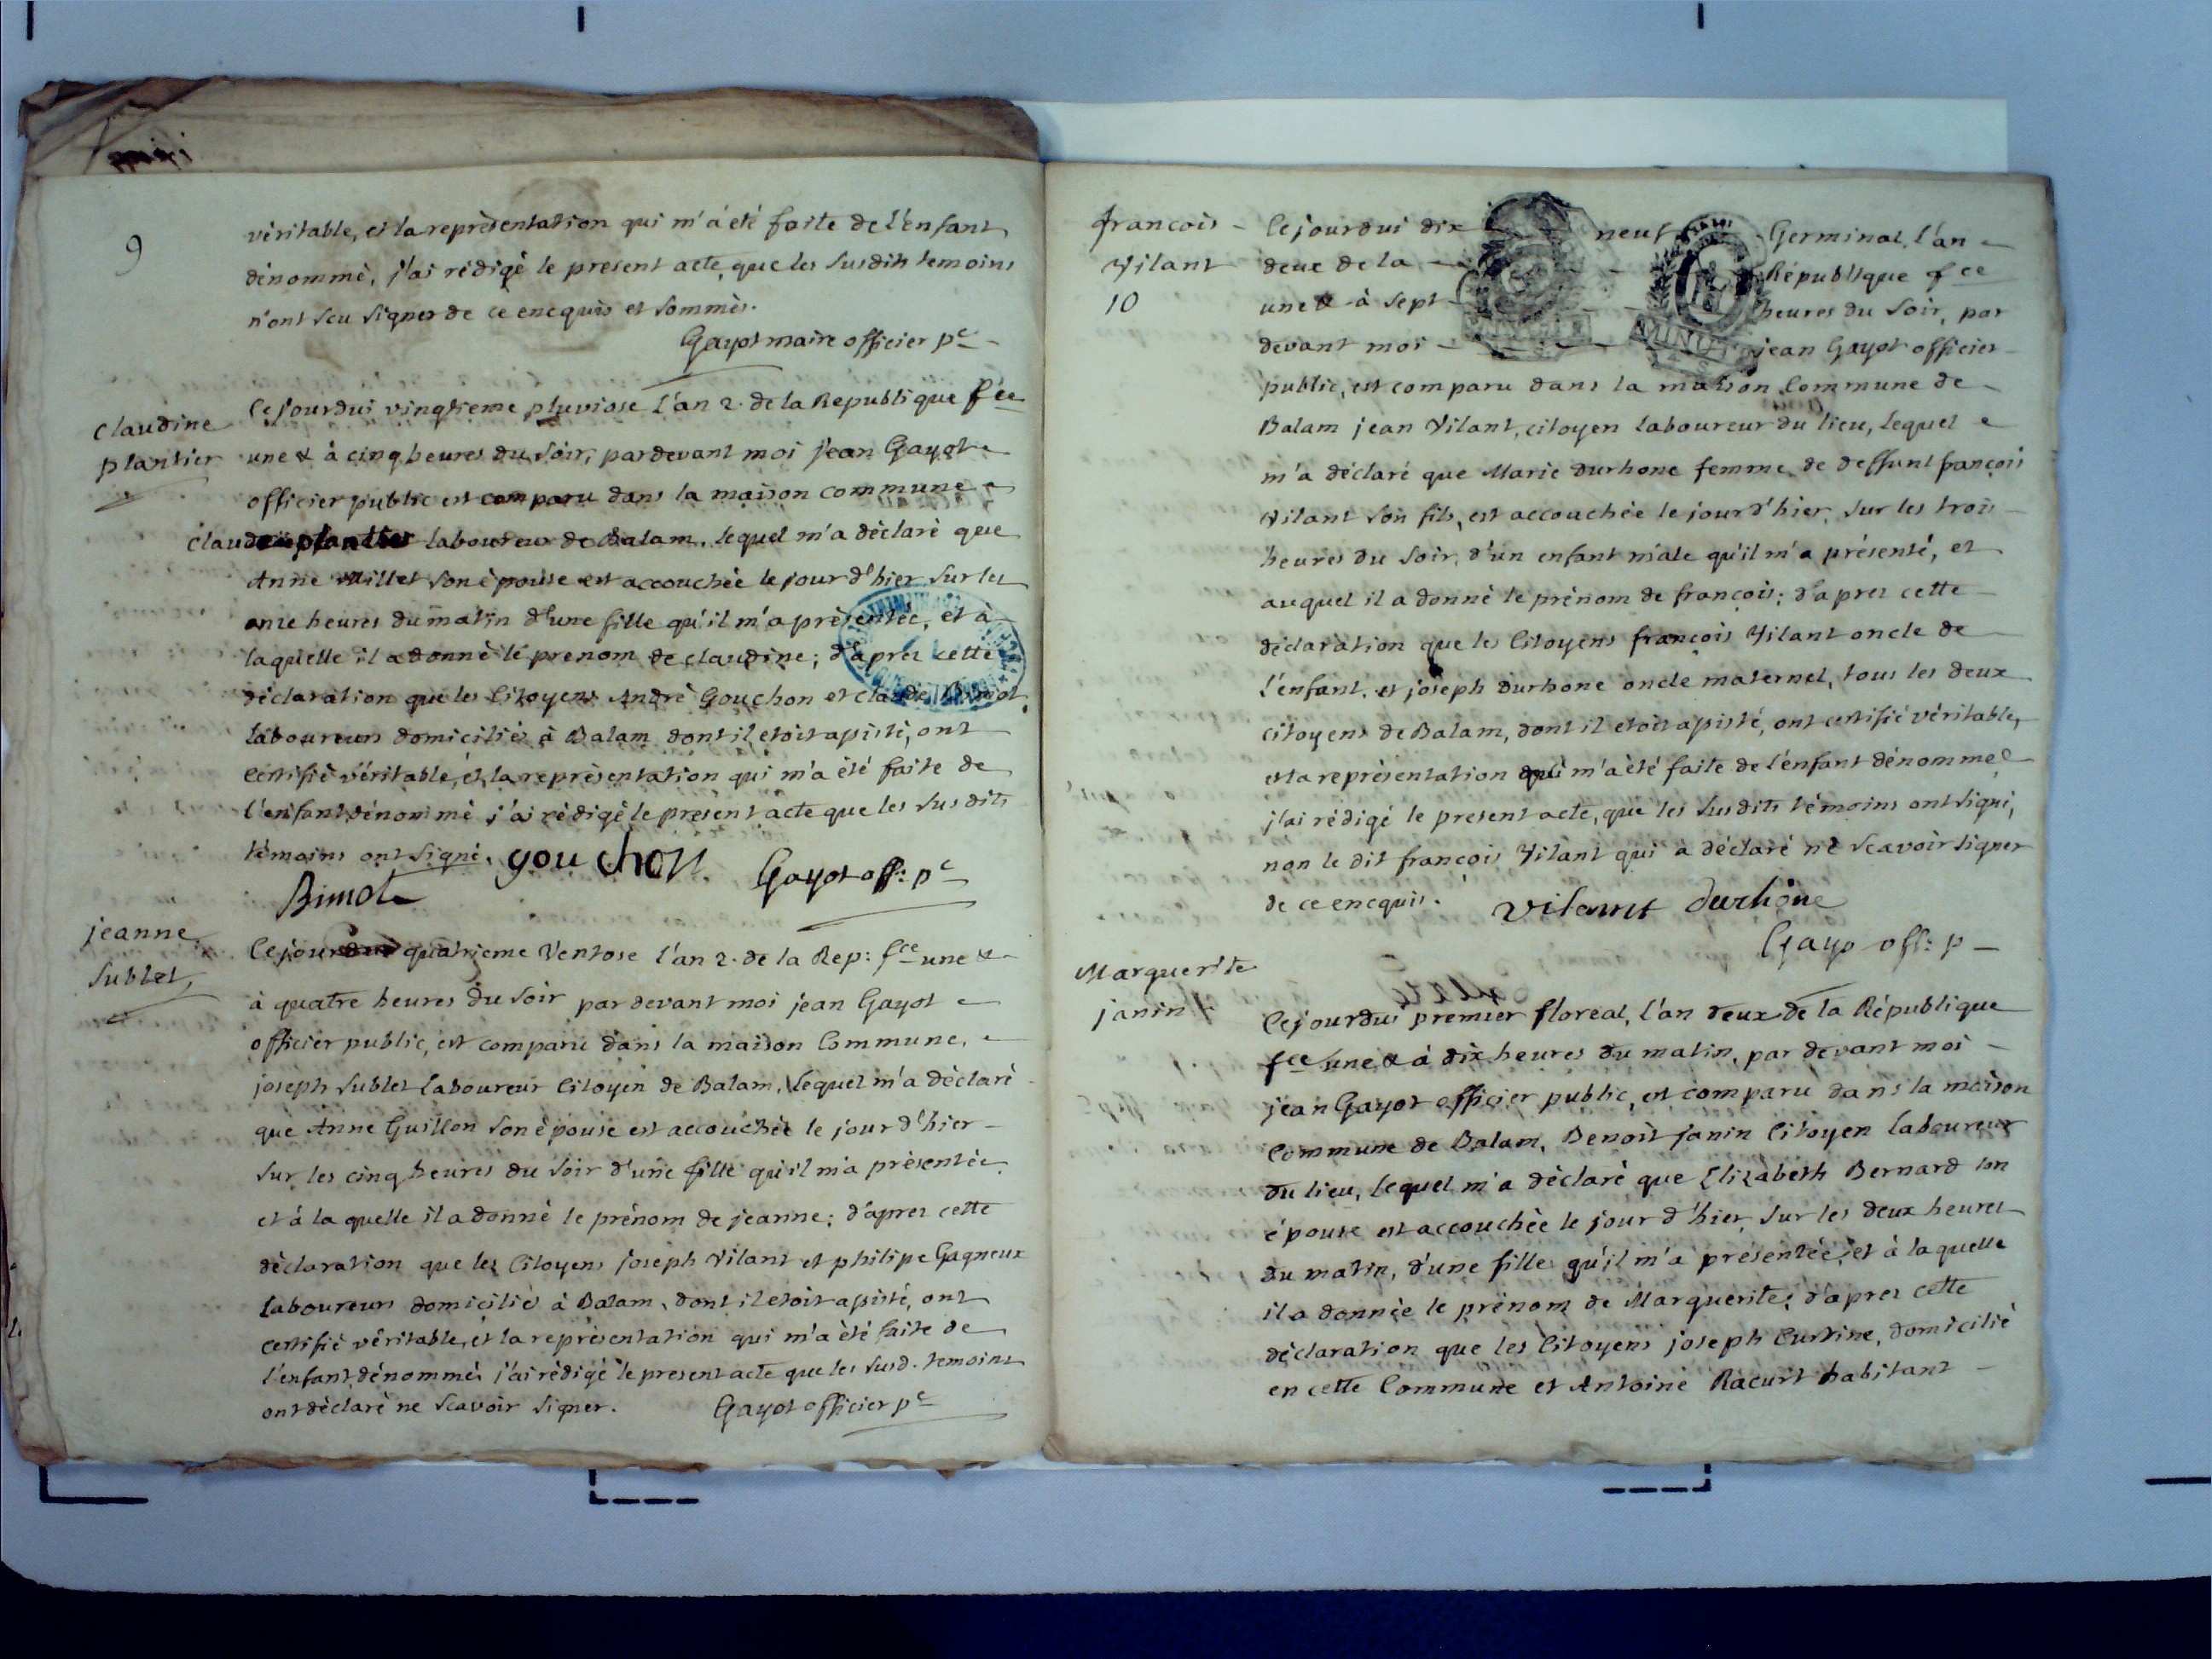 9
véritable, et la représentation qui m'a été faite de l'enfant
dénommé, j'ai rédigé le present acte, que les susdits temoins
n'ont sçu signer de ce enequis et sommés.
Gayot maire officier pc
claudine
plantier
Cejourdui vingtieme pluviose l'an 2. de la Republique fce
une & à cinq heures du soir, pardevant moi jean Gayot
officier public est comparu dans la maison commune
claude plantier laboureur de Balam, lequel m'a déclaré que
Anne Millet son épouse est accouchée le jour d'hier sur les
onze heures du matin d'une fille qu'il m'a présentée, et à
laquelle il a donné le prenom de claudine; d'après cette
déclaration que les Citoyens André Gouchon et claude Bimot
laboureurs domiciliés à Balam dont il étoit apisté, ont
certifié véritable, et la représentation qui m'a été faite de
l'enfant dénommé j'ai rédigé le present acte que les susdits
témoins ont signé. gouchon Gayot off: pc
Bimot
jeanne
Sublet
Cejourdui quatrieme Ventose l'an 2. de la Rep: fce une &
à quatre heures du soir par devant moi jean Gayot
officier public, est comparu dans la maison Commune,
joseph Sublet laboureur Citoyen de Balam, lequel m'a déclaré
que Anne Guillon son épouse est accouchée le jour d'hier
sur les cinq heures du soir d'une fille qu'il m'a présentée
et à la quelle il a donné le prénom de jeanne; d'après cette
déclaration que les Citoyens joseph Vilant et philipe Gagneux
laboureurs domiciliés à Balam, dont il étoit apisté, ont
certifié véritable, et la représentation qui m'a été faite de
l'enfant dénommé j'ai rédigé le present acte que les susd. temoins
ont déclaré ne scavoir signer. Gayot officier pc
françois
Vilant
10
Cejourdui dix neuf Germinal, l'an
deux de la République fce
une & à sept heures du soir, par
devant moi jean Gayot officier
public, est comparu dans la maison Commune de
Balam jean Vilant, citoyen laboureur du lieu, lequel
m'a déclaré que Marie durhone femme de deffunt françois
Vilant son fils, est accouchée le jour d'hier, sur les trois
heures du soir, d'un enfant mâle qu'il m'a présenté, et
auquel il a donné le prénom de françois; d'après cette
déclaration que les Citoyens françois Vilant oncle de
l'enfant, et joseph durhone oncle maternel, tous les deux
citoyens de Balam, dont il étoit apisté, ont certifié véritable,
et la représentation qui m'a été faite de l'enfant dénommé
j'ai rédigé le present acte, que les susdits témoins ont signé,
non le dit françois Vilant qui a déclaré ne scavoir signer
de ce enequis. Vilant durhône
Gayo off: p
Marguerite
janin
Cejourdui premier floreal, l'an deux de la République
fce une & à dix heures du matin, par devant moi
jean Gayot officier public, est comparu dans la maison
Commune de Balam, Benoit janin Citoyen laboureur
du lieu, lequel m'a déclaré que Elizabeth Bernard son
épouse est accouchée le jour d'hier, sur les deux heures
du matin, d'une fille qu'il m'a présentée, et à laquelle
il a donnée le prénom de Marguerite; d'après cette
déclaration que les Citoyens joseph Curtine, domicilié
en cette Commune et Antoine Racurt habitant